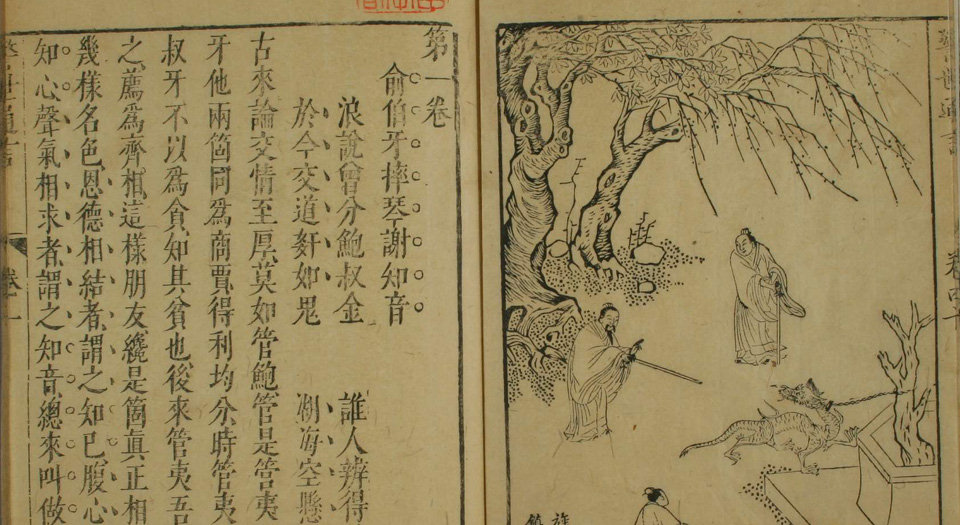 警世通言
卷四十
第一卷
俞伯牙摔琴謝知音
浪說曾分鮑叔金 誰人辨得
於今交道奸如鬼 湖海空懸
古來論交情至厚莫如管鮑管是管夷
牙他兩箇同爲商賈得利均分時管夷
叔牙不以爲貪知其貧也後來管夷吾
之薦爲齊相這樣朋友纔是箇眞正相
幾樣名色恩德相結者謂之知己腹心
知心聲氣相求者謂之知音總來叫做
警世通言
卷一